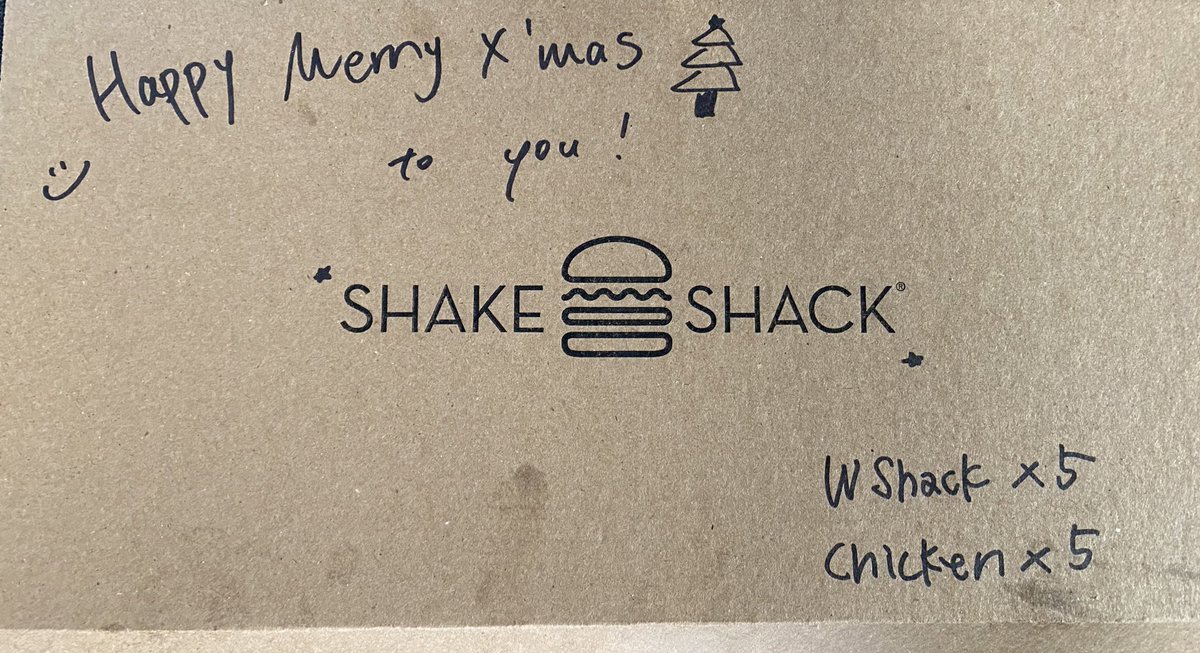 Happy Merry X'mas
to you!
SHAKE SHACK®
W Shack x5
Chicken x5